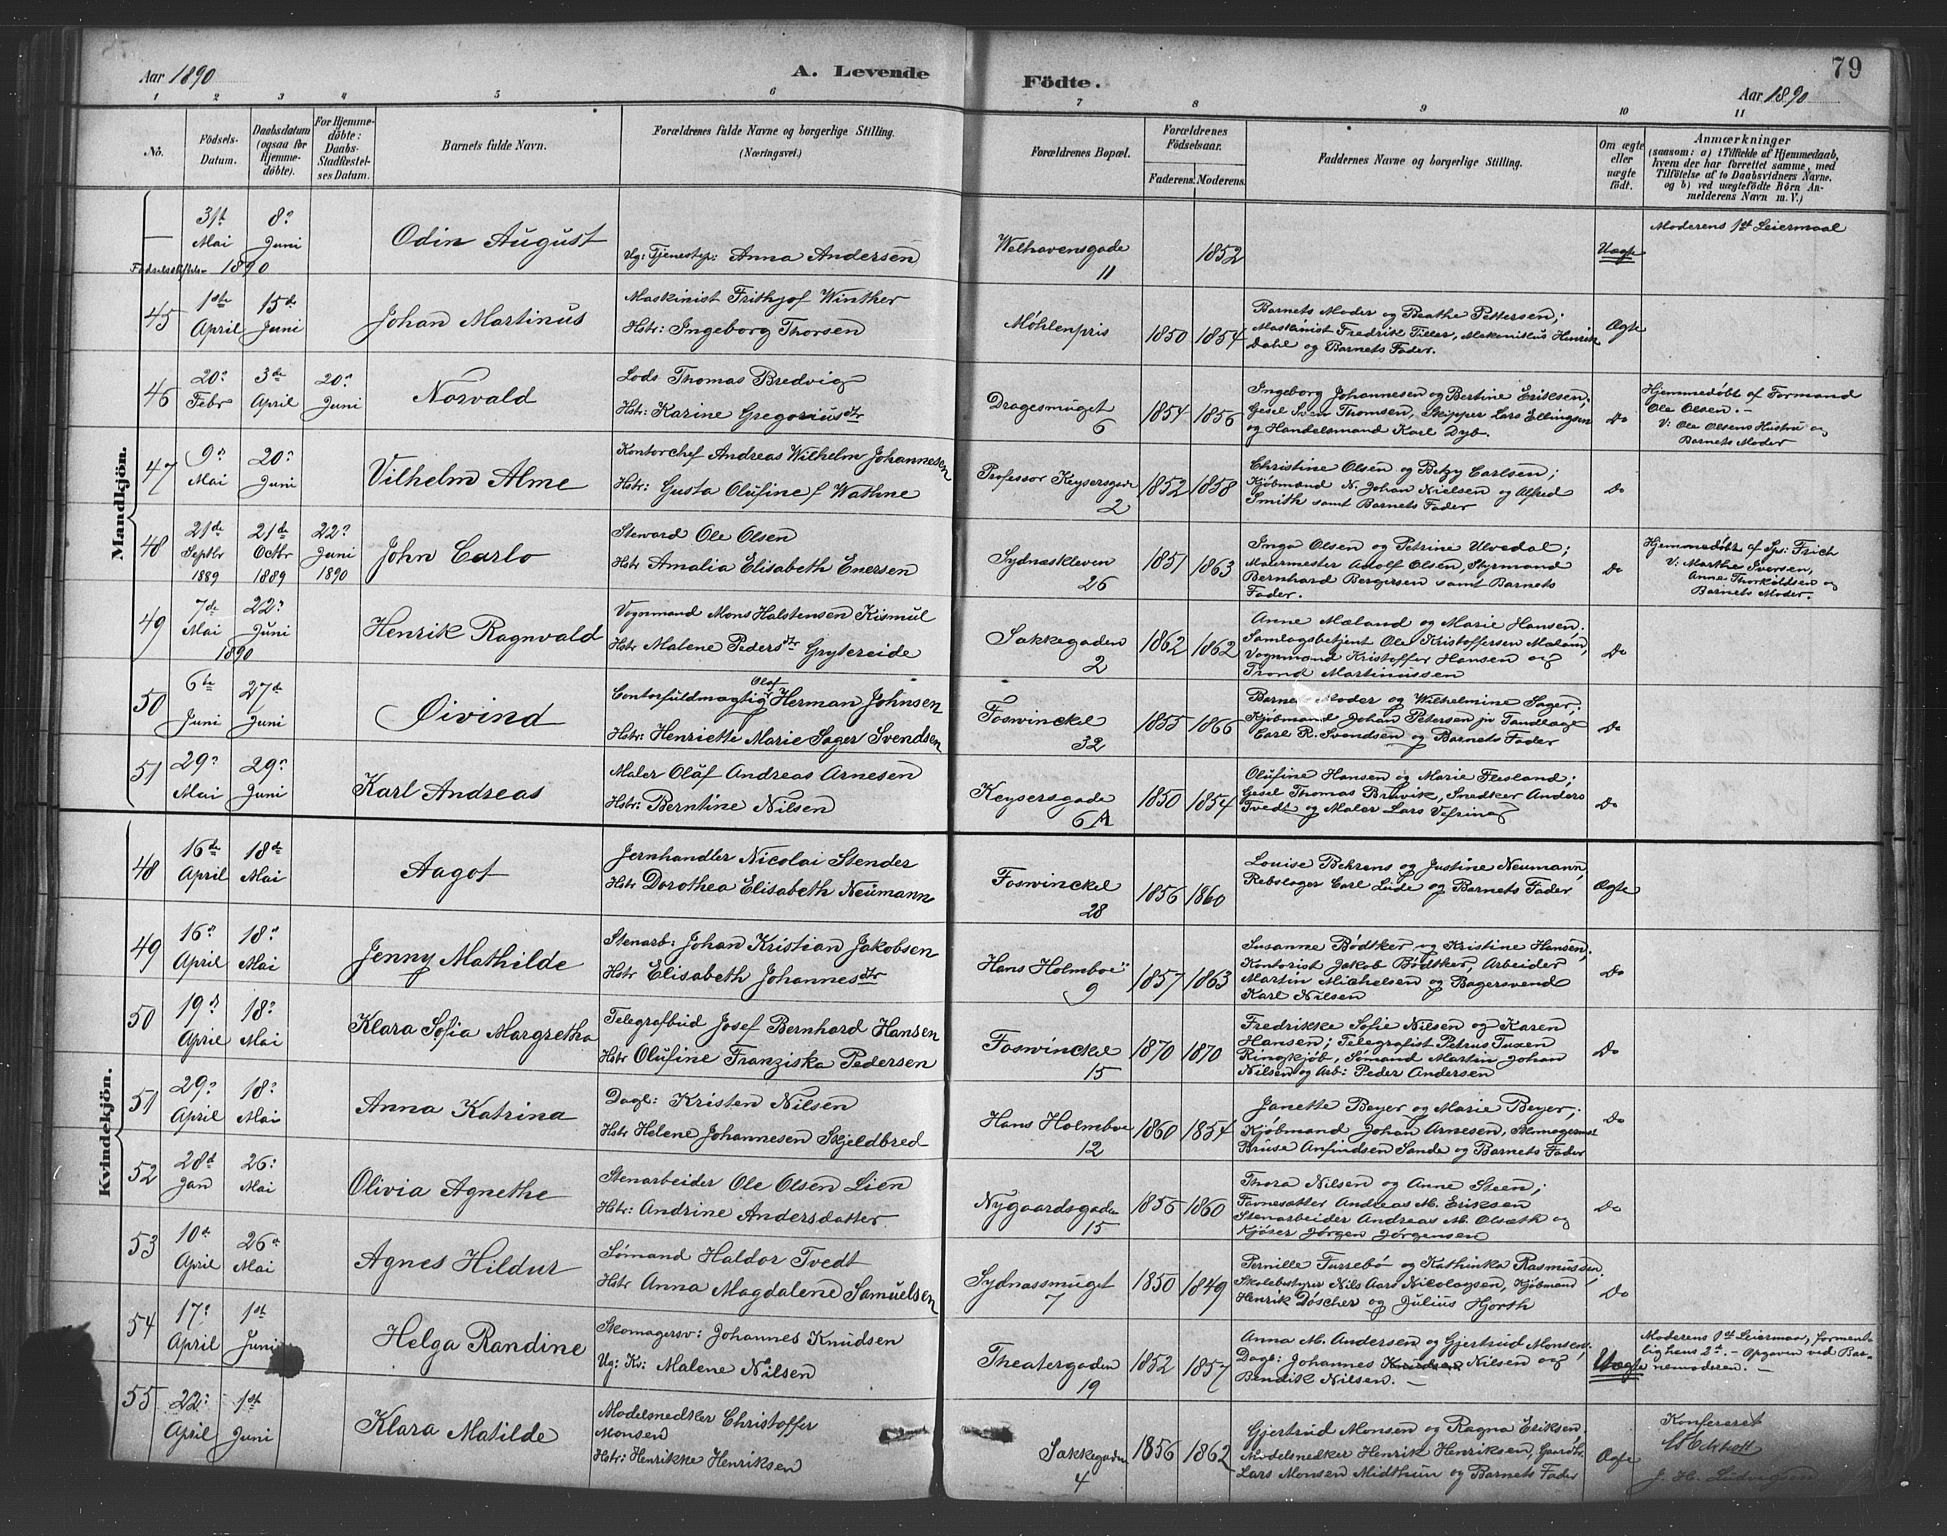 Aar 1890
A. Levende
Födte.
79
Aar 1890
1 2 3 4 5 6 7 8 9 10 11
No.
Födsels-
Datum.
Daabsdatum
(ogsaa for
Hjemme-
döbte).
For Hjemme-
döbte:
Daabs-
Stadfæstel-
ses Datum.
Barnets fulde Navn.
Forældrenes fulde Navne og borgerlige Stilling.
(Næringsvei.)
Forældrenes Bopæl.
Forældrenes
Födselsaar.
Faderens. Moderens.
Faddernes Navne og borgerlige Stilling.
Om ægte
eller
uægte
födt.
Anmærkninger
(saasom: a) i Tilfælde af Hjemmedaab,
hvem der har forrettet samme, med
Tilföielse af to Daabsvidners Navne,
og b) ved uægtefödte Börn An-
melderens Navn m. V.)
Mandkjön.
— 31te Mai 8de Juni
1890
Odin August
Ug: Tjenestep: Anna Andersen
Welhavensgade
11
1852
Uægte
Moderens 1st Leiermaal
45 1ste April 15de Juni
Johan Martinus
Maskinist Frithjof Winther
Hstr: Ingeborg Thorsen
Møhlenpris
1850 1854
Barnets Moder og Beathe Pettersen;
Maskinist Fredrik Tiller, Mekanikus Henrik
Dahl og Barnets Fader.
Ægte
46 20de Febr 3de April 20de Juni
Norvald
Lods Thomas Bredvig
Hstr: Karine Gregoriusdtr
Dragesmuget
6
1854 1856
Ingeborg Johannesen og Bertine Eriksen;
Gesel Svein Thomsen, Skipper Lars Ellingsen
og Handelsmand Karl Dyb.
Do
Hjemmedøbt af Formand
Ole Olsen. —
V: Ole Olsens Hustru og
Barnets Moder
47 9de Mai 20de Juni
Vilhelm Alme
Kontorchef Andreas Wilhelm Johannesen
Hstr: Gusta Olufine f Wathne
Professor Keysersgade
2
1852 1858
Christine Olsen og Betzy Carlsen;
Kjøbmænd N. Johan Nielsen og Alfred
Smith samt Barnets Fader
Do
48 21de Septbr 1889 21de Octbr 1889 22de Juni 1890
John Carlo
Steward Ole Olsen
Hstr Amalia Elisabeth Enersen
Sydnæskleven
26
1851 1863
Inga Olsen og Petrine Ulvedal;
Malermester Adolf Olsen, Styrmand
Bernhard Bergersen samt Barnets
Fader.
Do
Hjemmedøbt af Sp: Frich
V: Marthe Iversen,
Anne Thorkildsen og
Barnets Moder.
49 7de Mai 22de Juni
1890
Henrik Ragnvald
Vognmand Mons Halstensen Kismul
Hstr Malene Pedersdtr Grytereide
Sakkegaden
2
1862 1862
Anne Mæland og Marie Hansen;
Samlagsbetjent Ole Kristoffersen
Vognmand Kristoffer Hansen og
Trond Martinussen
Do
50 6te Juni 27de Juni
Øivind
Olaf
Contorfuldmægtig Herman Johnsen
Hstr: Henriette Marie Sager Svendsen
Foswinckel
32
1855 1866
Barnets Moder og Wilhelmine Sager;
Kjøbmand Johan Petersen jr Tandlæge
Carl R. Svendsen og Barnets Fader
Do
51 29de Mai 29de Juni
Karl Andreas
Maler Oluf Andreas Arnesen
Hstr: Berntine Nilsen
Keysersgade
6 A
1850 1854
Olufine Hansen og Marie Flesland;
Gesel Thomas Bruvik, Snedker Anders
Tvedt og Maler Lars Vefring
Do
Kvindekjön.
48 16de April 18de Mai
Aagot
Jernhandler Nicolai Stender
Hstr Dorothea Elisabeth Neumann
Foswinckel
28
1856 1860
Louise Behrens og Justine Neumann
Rebslager Carl Lude og Barnets Fader
Ægte
49 16de April 18de Mai
Jenny Mathilde
Stenarb: Johan Kristian Jakobsen
Hstr Elisabeth Johannesdtr
Hans Holmboe
9
1857 1863
Susanne Bødtker og Kristine Hansen;
Kontorist Jakob Bødtker, Arbeider
Martin Michelsen og Bagersvend
Karl Nilsen
Do
50 19de April 18de Mai
Klara Sofia Margretha
Telegrafbud Josef Bernhard Hansen
Hstr Olufine Franziska Pedersen
Foswinckel
15
1870 1870
Fredrikke Sofie Nilsen og Karen
Hansen; Telegrafist Petrus Tuxen
Ringkjøb, Sømand Martin Johan
Nilsen og Arb: Peder Andersen
Do
51 29de April 18de Mai
Anna Katrina
Dagl: Kristen Nilsen
Hstr Helene Johannesen Skjeldbred
Hans Holmboe
12
1860 1854
Janette Beyer og Marie Beyer;
Kjøbmand Johan Arnesen, Skomagermst
Bruse Anfindsen Sande og Barnets Fader
Do
52 28d Jan 26: Mai
Olivia Agnethe
Stenarbeider Ole Olsen Lien
Hstr: Andrine Andersdatter
Nygaardsgaden
15
1856 1860
Thora Nilsen og Anne Steen;
Favnesætter Andreas M. Eriksen
Stenarbeider Andreas M. Olsæth og
Kjøser Jørgen Jørgensen
Do
53 10de April 26de Mai
Agnes Hildur
Sømand Haldor Tvedt
Hstr Anna Magdalene Samuelsen
Sydnæssmuget
7
1850 1849
Pernille Furrebø og Kathinka Rasmussen;
Skolebestyrer Nils Aars Nicolaysen, Kjøbmand
Henrik Döscher og Julius Hjorth
Do
54 17de April 1ste Juni
Helga Randine
Skomagersv: Johannes Knudsen
Ug: Kv: Malene Nilsen
Theatergaden
19
1852 1857
Anna M. Andersen og Gjertrud Monsen;
Dagl: Johannes Knudsen Nilsen og
Bendik Nilsen. —
Uægte
Moderens 1st Leiermaal, forment-
lig hans 2d. — Opgaven ved Bar-
nemoderen. —
55 22de April 1ste Juni
Klara Matilde
Modelsnedker Christoffer
Monsen
Hstr: Henrikke Henriksen
Sakkegaden
4
1856 1862
Gjertrud Monsen og Ragna Eriksen;
Modelsnedker Henrik Henriksen, Gaardbr.
Lars Monsen Midthun og Barnets Fader
Ægte
Konfereret
J. H. Ludvigsen